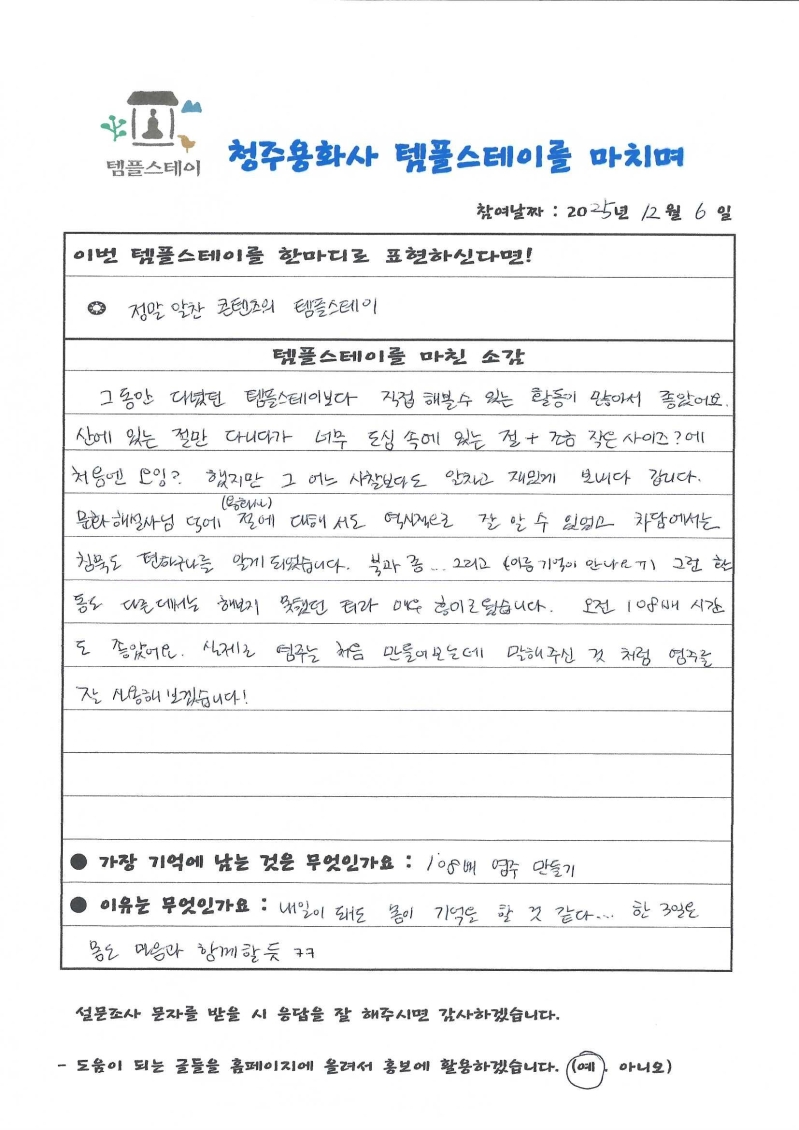 템플스테이
청주용화사 템플스테이를 마치며
참여날짜 : 2025년 12월 6일
이번 템플스테이를 한마디로 표현하신다면!
정말 알찬 콘텐츠의 템플스테이
템플스테이를 마친 소감
그동안 다녔던 템플스테이보다 직접 해볼 수 있는 활동이 많아서 좋았어요.
산에 있는 절만 다니다가 너무 도심 속에 있는 절 + 조금 작은 사이즈?에
처음엔 모잉? 했지만 그 어느 사찰보다도 알차고 재밌게 보내다 갑니다.
(용화사)
문화해설사님 덕에 절에 대해서도 역사적으로 잘 알 수 있었고 차담에서는
침묵도 편하구나를 알게 되었습니다. 북과 종... 그리고 (이름 기억이 안나요ㅠ) 그런 한
통도 다른데서는 해보지 못했던 터라 매우 흥미로웠습니다. 오전 108배 시간
도 좋았어요. 실제로 염주는 처음 만들어보는데 말해주신 것 처럼 염주를
잘 사용해보겠습니다!
● 가장 기억에 남는 것은 무엇인가요 : 108배 염주 만들기
● 이유는 무엇인가요 : 내일이 돼도 몸이 기억을 할 것 같다... 한 3일은
몸도 마음과 함께할듯 ㅋㅋ
설문조사 문자를 받을 시 응답을 잘 해주시면 감사하겠습니다.
- 도움이 되는 글들을 홈페이지에 올려서 홍보에 활용하겠습니다. (예 . 아니오)